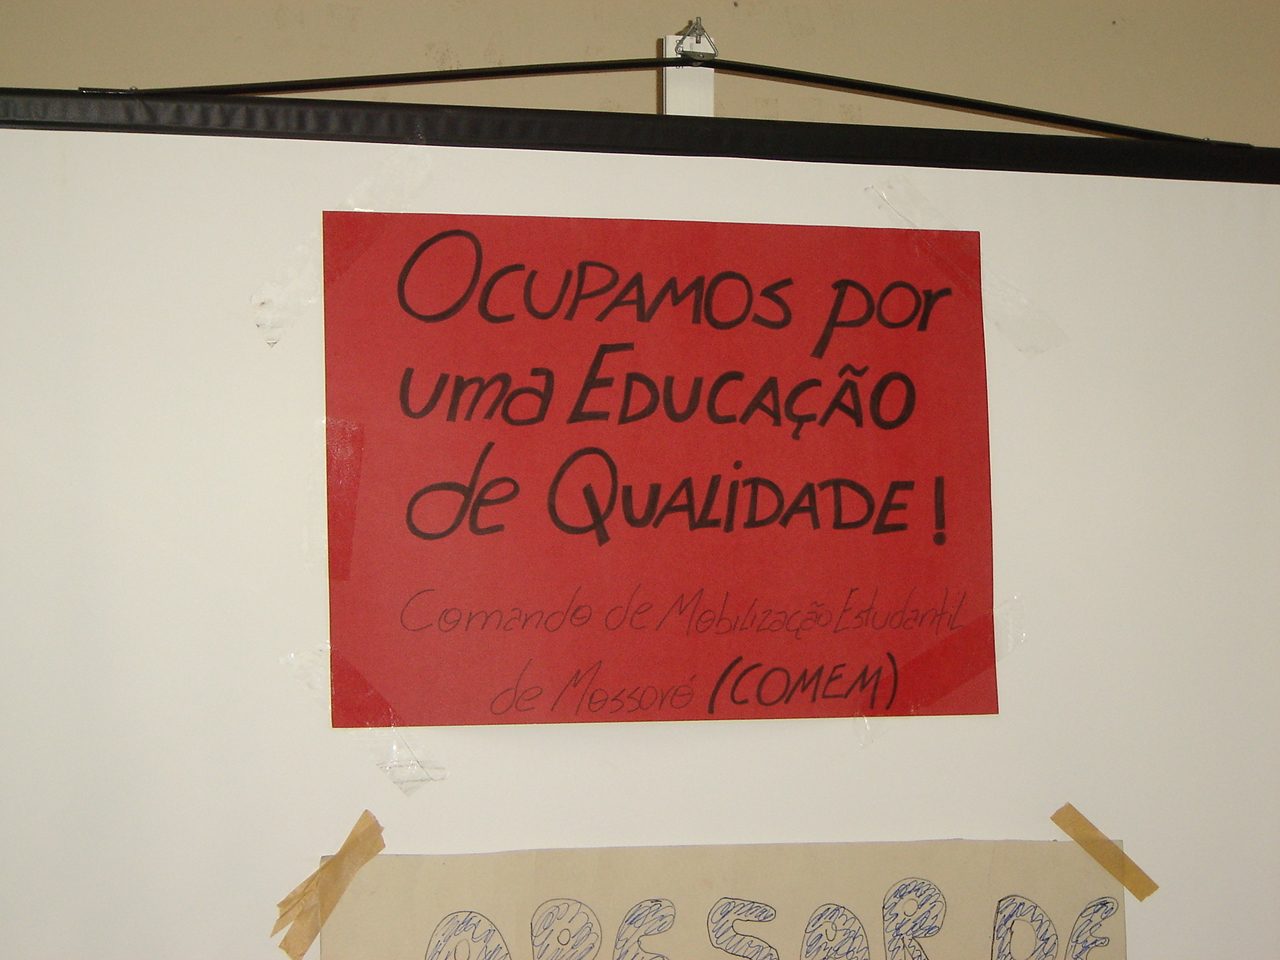 Ocupamos por
uma Educação
de Qualidade!
Comando de Mobilização Estudantil
de Mossoró (COMEM)
APESAR DE